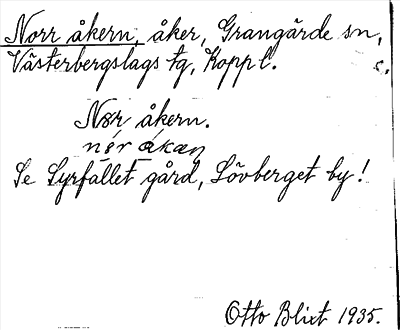 Norr åkern, åker, Grangärde sn,
Västerbergslags tg, Kopp l. c.
Nør åkern.
nǿr åkaɳ
Se Syrfallet gård, Lövberget by!
Otto Blixt 1935.